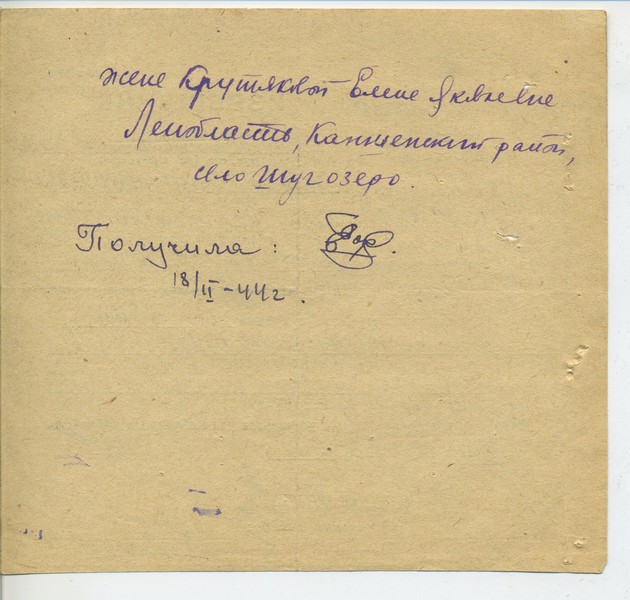 жене Крутяковой Елене Яковлевне
Ленобласть, Капшенский район,
село Шугозеро.
Получила:
18/II-44г.